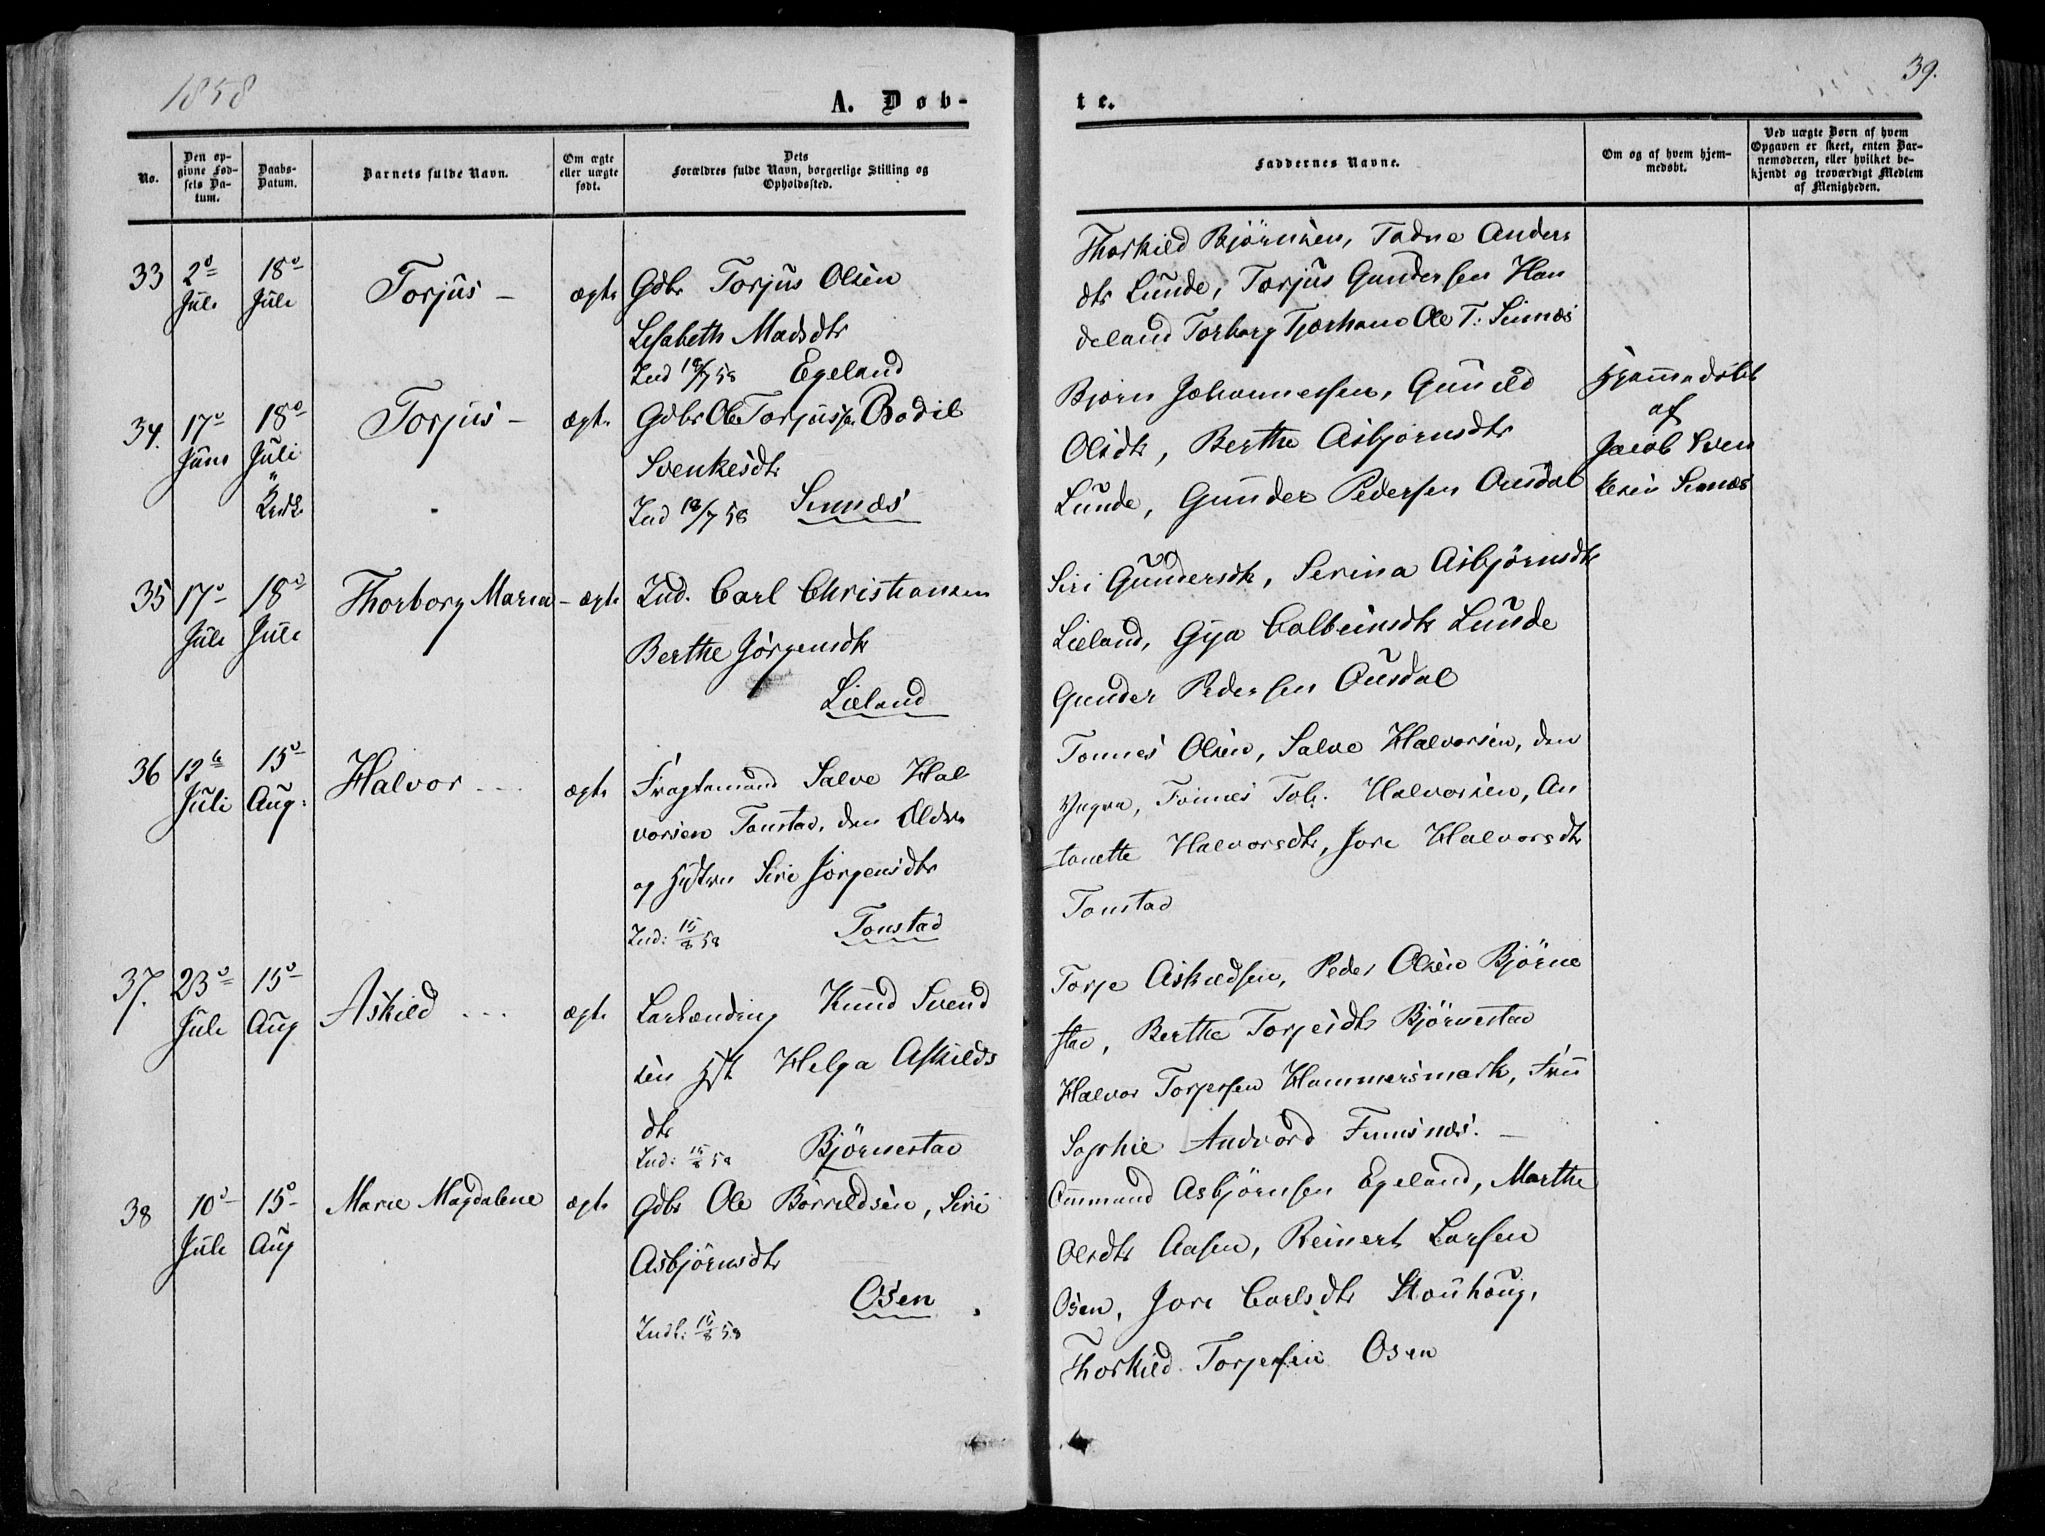 1858
39.
A. Døb-
te.
No.
Den op-
givne Fød-
sels Da-
tum.
Daabs-
Datum.
Barnets fulde Navn.
Om ægte
eller uægte
født.
Dets
Forældres fulde Navn, borgerlige Stilling og
Opholdssted.
Faddernes Navne.
Om og af hvem hjem-
medøbt.
Ved uægte Børn af hvem
Opgaven er skeet, enten Bar-
nemoderen, eller hvilket be-
kjendt og troværdigt Medlem
af Menigheden.
33
2d
Juli
18d
Juli
Torjus -
ægte
Gdbr Torjus Olsen
Lisabeth Madsdtr
Ind 18/7 58 Egeland
Thorkild Bjørnsen, Tadne Anders
dtr Lunde, Torjus Gundersen Han
deland Torborg Tjærhom Ole T. Sinnæs
34.
17d
Juni
18d
Juli
"
Kirke
Torjus -
ægte
Gdbr Ole Torjussen Bodil
Svenkesdtr
Ind 18/7 58 Sinnæs
Bjørn Johannessen, Gunild
Olsdtr, Berthe Asbjørnsdtr
Lunde, Gunder Pedersen Ousdal
Hjemmedøbt
af
Jacob Sven
kesen Sinnæs
35
17d
Juli
18d
Juli
Thorborg Maria -
ægte
Ind. Carl Christiansen
Berthe Jørgensdtr
Lieland
Siri Gundersdtr, Serina Asbjørnsdtr
Lieland, Gya Colbeinsdtr Lunde
Gunder Pedersen Ousdal
36
12te
Juli
15d
Aug:
Halvor
ægte
Fragtemand Salve Hal
vorsen Tonstad, den Ældre
og Hustru Siri Jørgensdtr
Ind: 15/8 58 Tonstad
Tonnes Olsen, Salve Halvorsen, den
Yngre, Tonnes Tob. Halvorsen, An
tonette Halvorsdtr, Jore Halvorsdtr
Tonstad
37.
23d
Juli
15d
Aug
Askild
ægte
Larlænding Knud Svend
sen Hst Helga Askilds
dtr
Ind: 15/8 58 Bjørnestad
Torje Askildsen, Peder Olsen Bjørne
stad, Berthe Torjesdtr Bjørnestad
Halvor Torjessen Hammersmark, Fru
Sophie Andvord Finsnæs. -
38
10d
Juli
15d
Aug
Marie Magdalene
ægte
Gdbr Ole Børrildsen, Siri
Asbjørnsdtr
Osen
Indl: 15/8 58
Ommund Asbjørnsen Egeland, Marthe
Olsdtr Aasen, Reinert Larsen
Osen, Jore Carlsdtr Stouhoug,
Thorkild Torjessen Osen